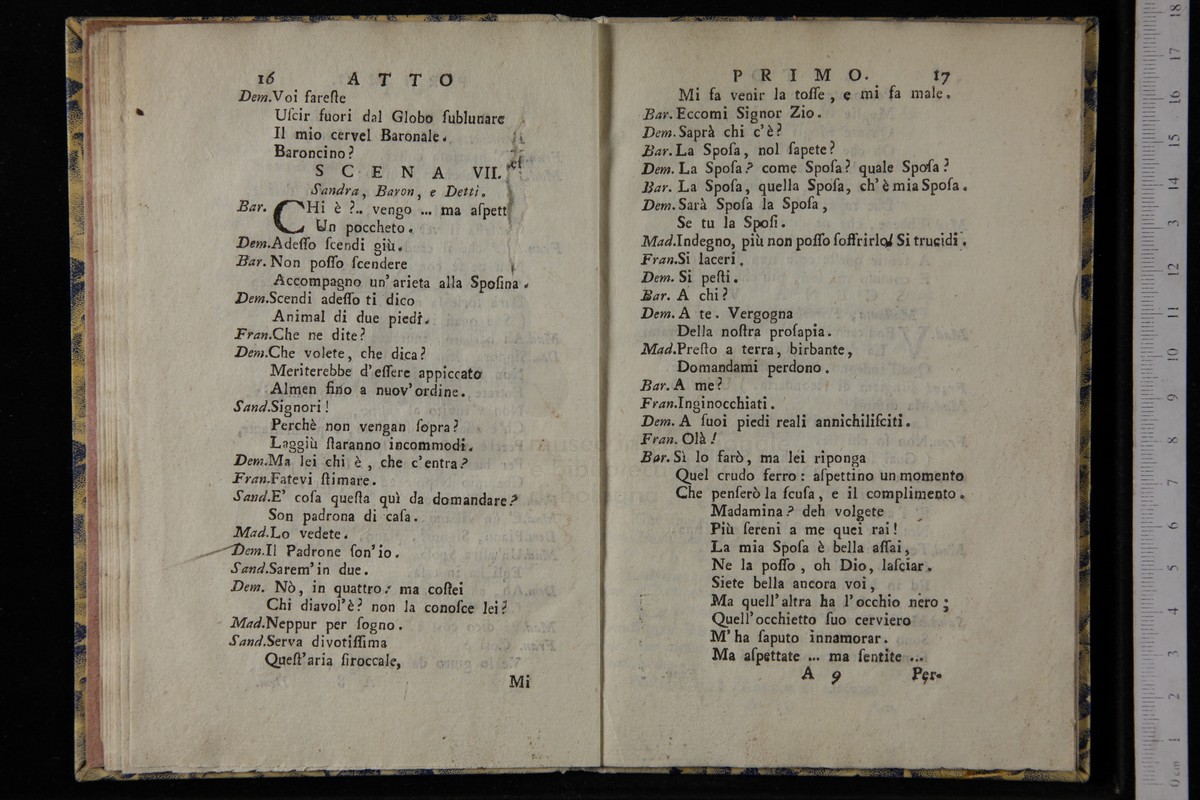 16 ATTO
Dem.Voi fareſte
Uſcir fuori dal Globo ſublunare
Il mio cervel Baronale.
Baroncino?
SCENA VII.
Sandra, Baron, e Detti.
Bar. CHi è ?.. vengo ... ma aſpett
Un poccheto.
Dem.Adeſſo ſcendi giù.
Bar. Non poſſo ſcendere
Accompagno un' arieta alla Spoſina.
Dem.Scendi adeſſo ti dico
Animal di due piedi.
Fran.Che ne dite?
Dem.Che volete, che dica?
Meriterebbe d'eſſere appiccato
Almen fino a nuov'ordine.
Sand.Signori!
Perchè non vengan ſopra?
Laggiù ſtaranno incommodi.
Dem.Ma lei chi è, che c'entra?
Fran.Fatevi ſtimare.
Sand.E' coſa queſta quì da domandare?
Son padrona di caſa.
Mad.Lo vedete.
Dem.Il Padrone ſon'io.
Sand.Sarem'in due.
Dem. Nò, in quattro: ma coſtei
Chi diavol'è? non la conoſce lei?
Mad.Neppur per ſogno.
Sand.Serva divotiſſima
Queſt'aria ſiroccale,
Mi
PRIMO. 17
Mi fa venir la toſſe, e mi fa male.
Bar. Eccomi Signor Zio.
Dem. Saprà chi c'è?
Bar. La Spoſa, nol ſapete?
Dem. La Spoſa? come Spoſa? quale Spoſa?
Bar. La Spoſa, quella Spoſa, ch'è mia Spoſa.
Dem. Sarà Spoſa la Spoſa,
Se tu la Spoſi.
Mad.Indegno, più non poſſo ſoffrirlo! Si trucidi.
Fran.Si laceri.
Dem. Si peſti.
Bar. A chi?
Dem. A te. Vergogna
Della noſtra proſapia.
Mad.Preſto a terra, birbante,
Domandami perdono.
Bar. A me?
Fran.Inginocchiati.
Dem. A ſuoi piedi reali annichiliſciti.
Fran. Olà!
Bar. Sì lo farò, ma lei riponga
Quel crudo ferro: aſpettino un momento
Che penſerò la ſcuſa, e il complimento.
Madamina? deh volgete
Più ſereni a me quei rai!
La mia Spoſa è bella aſſai,
Ne la poſſo, oh Dio, laſciar.
Siete bella ancora voi,
Ma quell'altra ha l'occhio nero;
Quell'occhietto ſuo cerviero
M'ha ſaputo innamorar.
Ma aſpettate ... ma ſentite ...
A 9 Per-